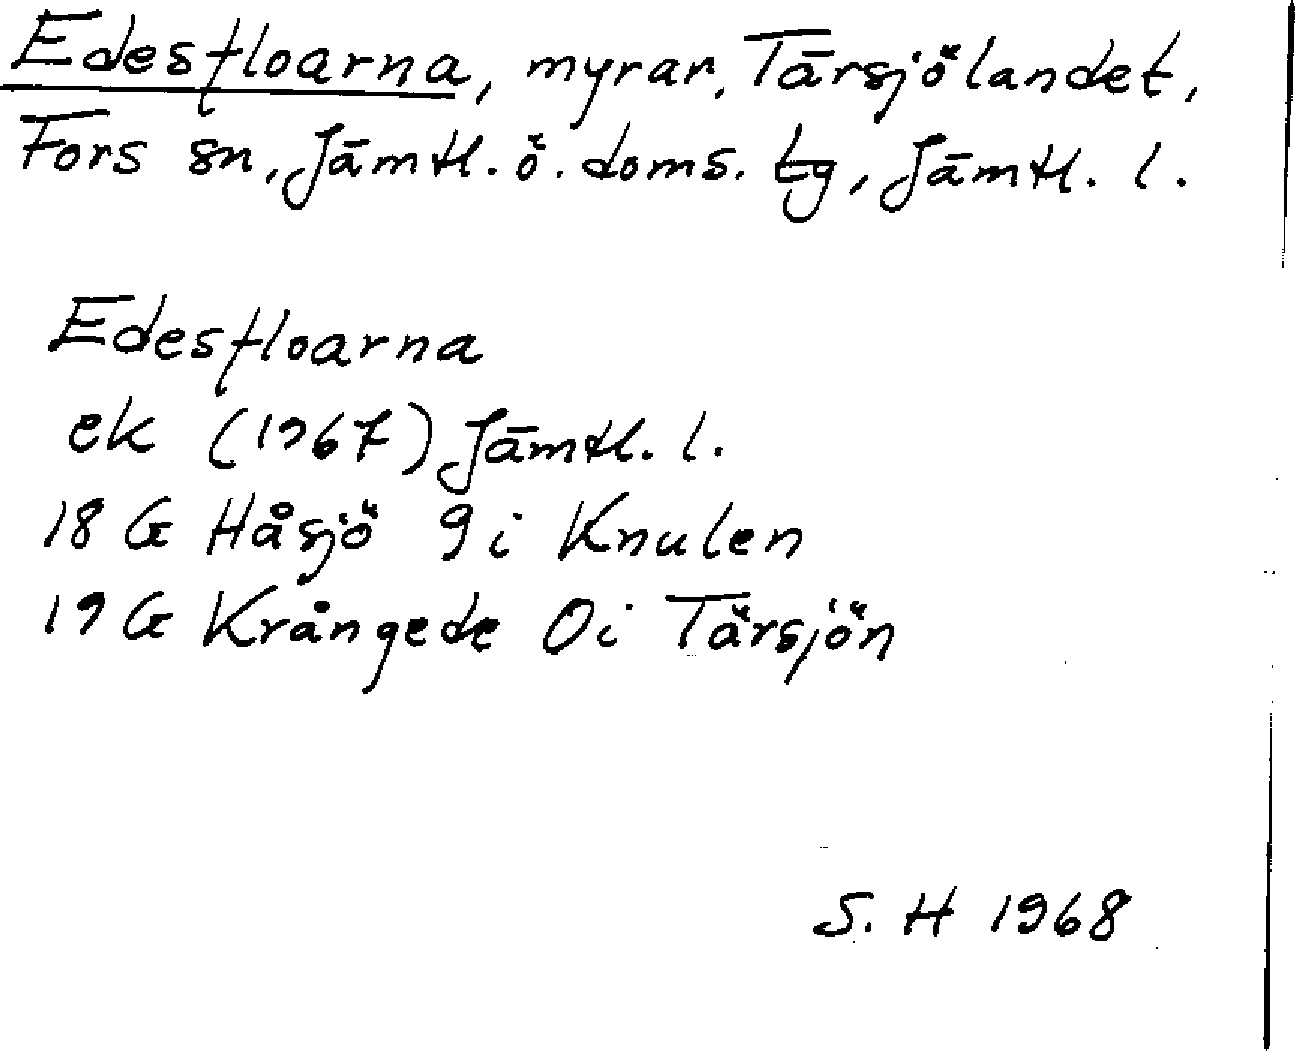 Edesfloarna, myrar, Tärsjölandet,
Fors sn, Jämtl. ö. doms. tg, Jämtl. l.
Edesfloarna
ek (1967) Jämtl. l.
18 G Håsjö 9 i Knulen
19 G Krångede 0 i Tärsjön
S. H 1968